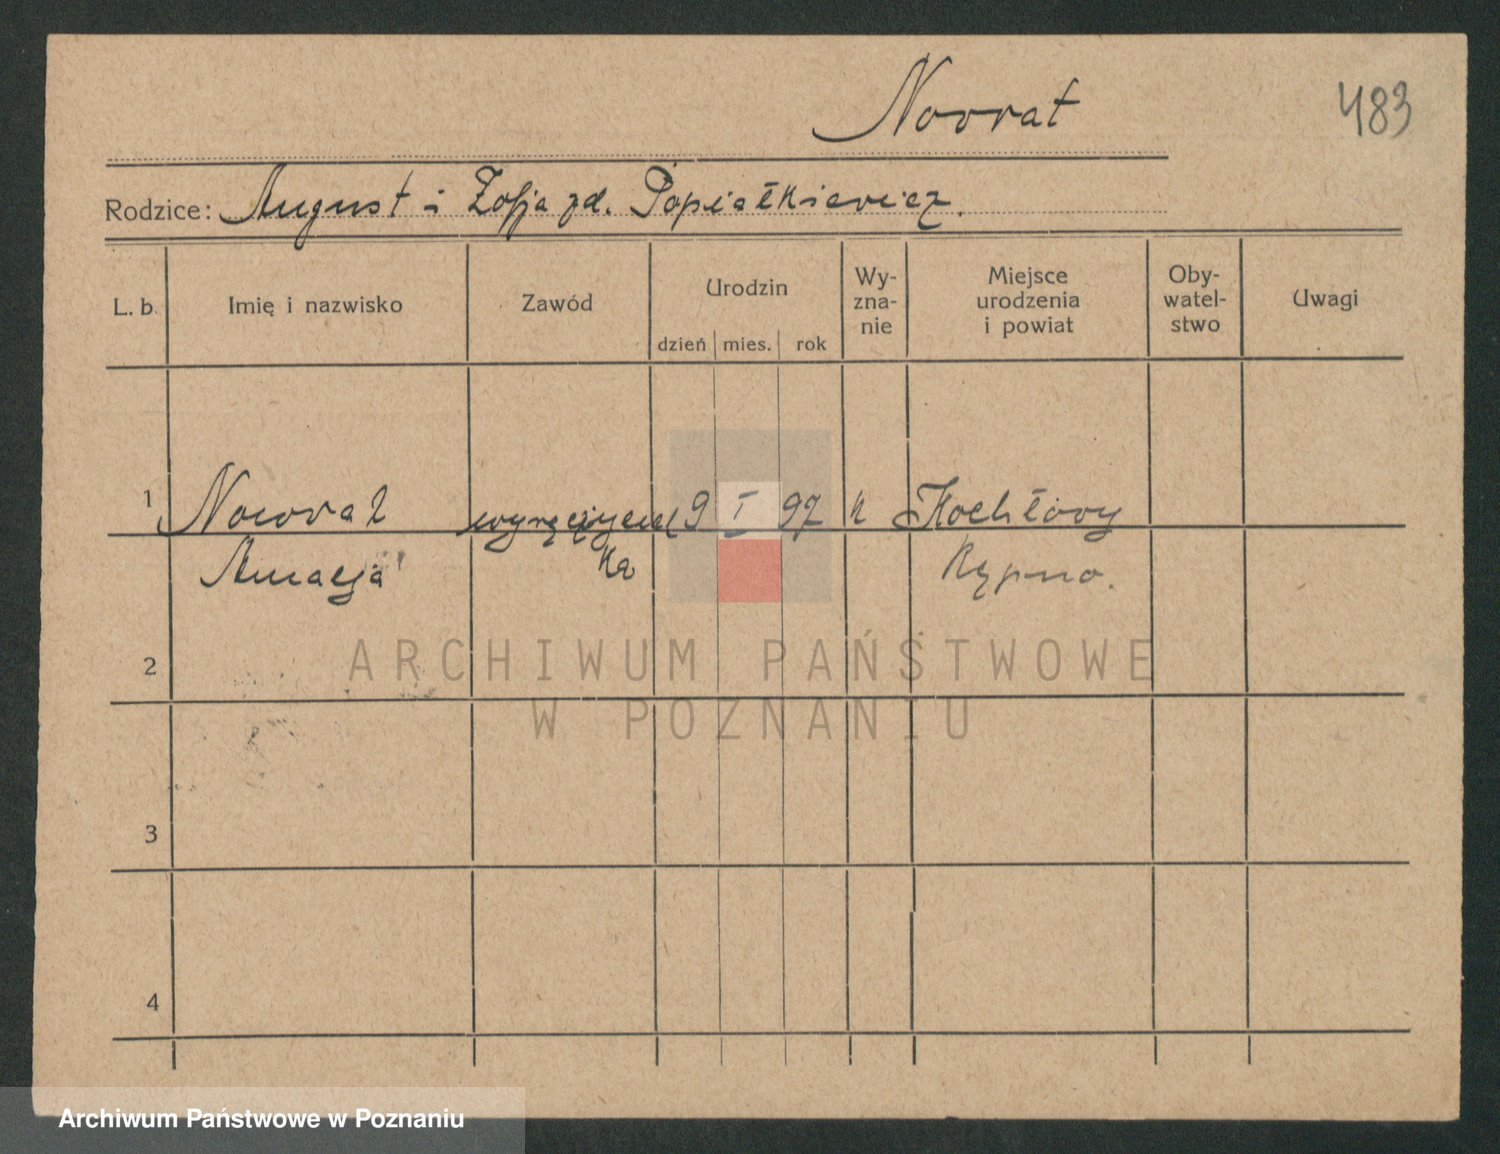 Nowrat
483
Rodzice: August i Zofja zd. Popiałkiewicz.
L. b. Imię i nazwisko Zawód Urodzin dzień mies. rok Wy-zna-nie Miejsce urodzenia i powiat Oby-watel-stwo Uwagi
1 Nowrat wyręczyciel 9 I 97 k Kochłowy
Amalja ka Kępno.
2
3
4
ARCHIWUM PAŃSTWOWE
W POZNANIU
Archiwum Państwowe w Poznaniu